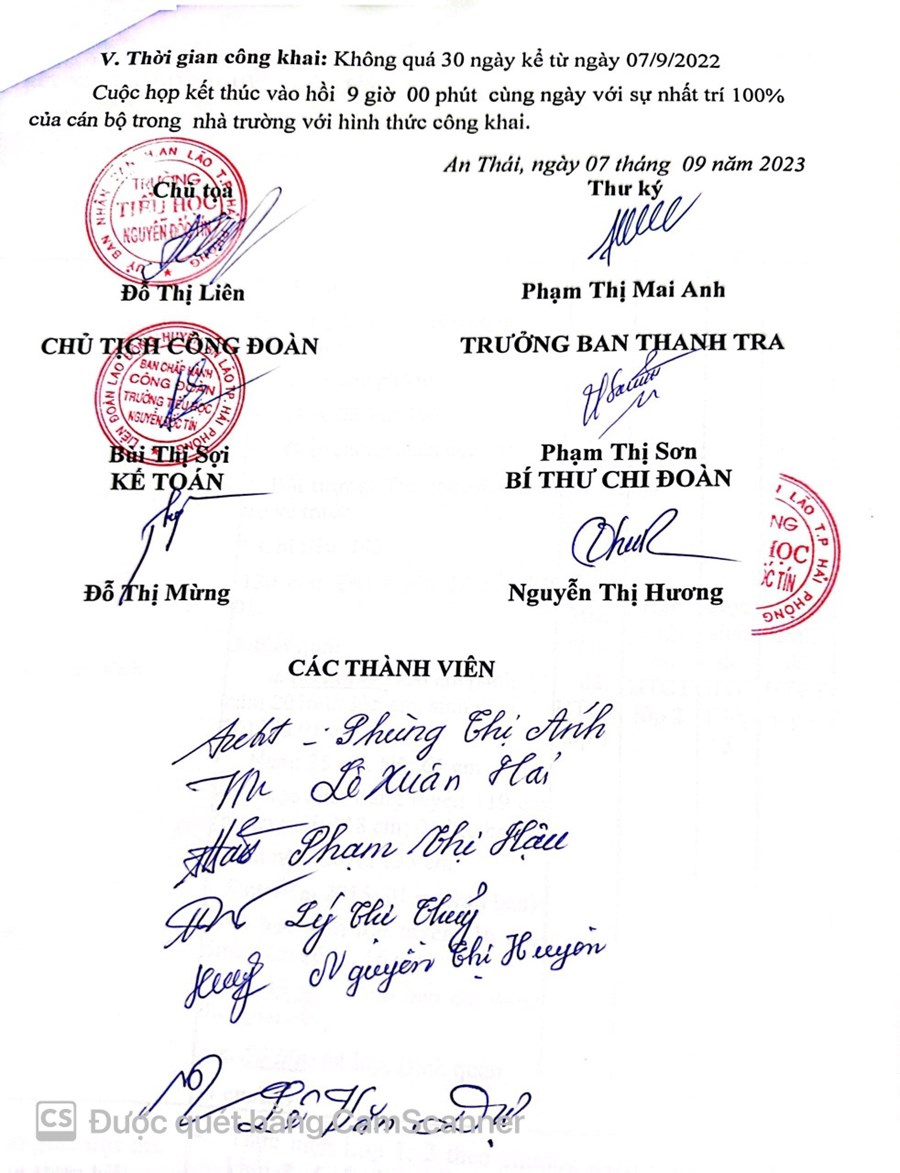 V. Thời gian công khai: Không quá 30 ngày kể từ ngày 07/9/2022
Cuộc họp kết thúc vào hồi 9 giờ 00 phút cùng ngày với sự nhất trí 100%
của cán bộ trong nhà trường với hình thức công khai.
An Thái, ngày 07 tháng 09 năm 2023
Chủ tọa
Thư ký
TRƯỜNG
TIỂU HỌC
NGUYỄN ĐỐC TÍN
Đỗ Thị Liên
Phạm Thị Mai Anh
CHỦ TỊCH CÔNG ĐOÀN
TRƯỞNG BAN THANH TRA
BAN CHẤP HÀNH
CÔNG ĐOÀN
TRƯỜNG TIỂU HỌC
NGUYỄN ĐỐC TÍN
Bùi Thị Sợi
Phạm Thị Sơn
KẾ TOÁN
BÍ THƯ CHI ĐOÀN
LÃO T.P HẢI PHÒNG
NG
HỌC
ỐC TÍN
Đỗ Thị Mừng
Nguyễn Thị Hương
CÁC THÀNH VIÊN
Phùng Thị Ánh
Lê Xuân Hải
Phạm Thị Hậu
Lý Thị Thủy
Nguyễn Thị Huyền
Văn
CS Được quét bằng CamScanner